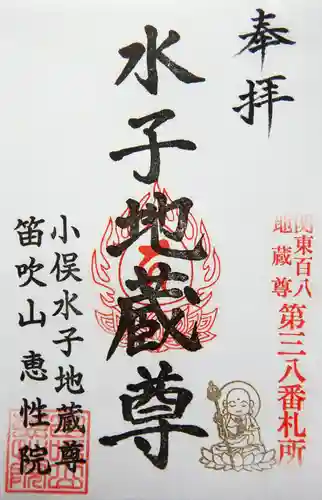 奉拝
関東百八
地蔵尊 第三八番札所
水子地蔵尊
小俣水子地蔵尊
笛吹山 恵性院